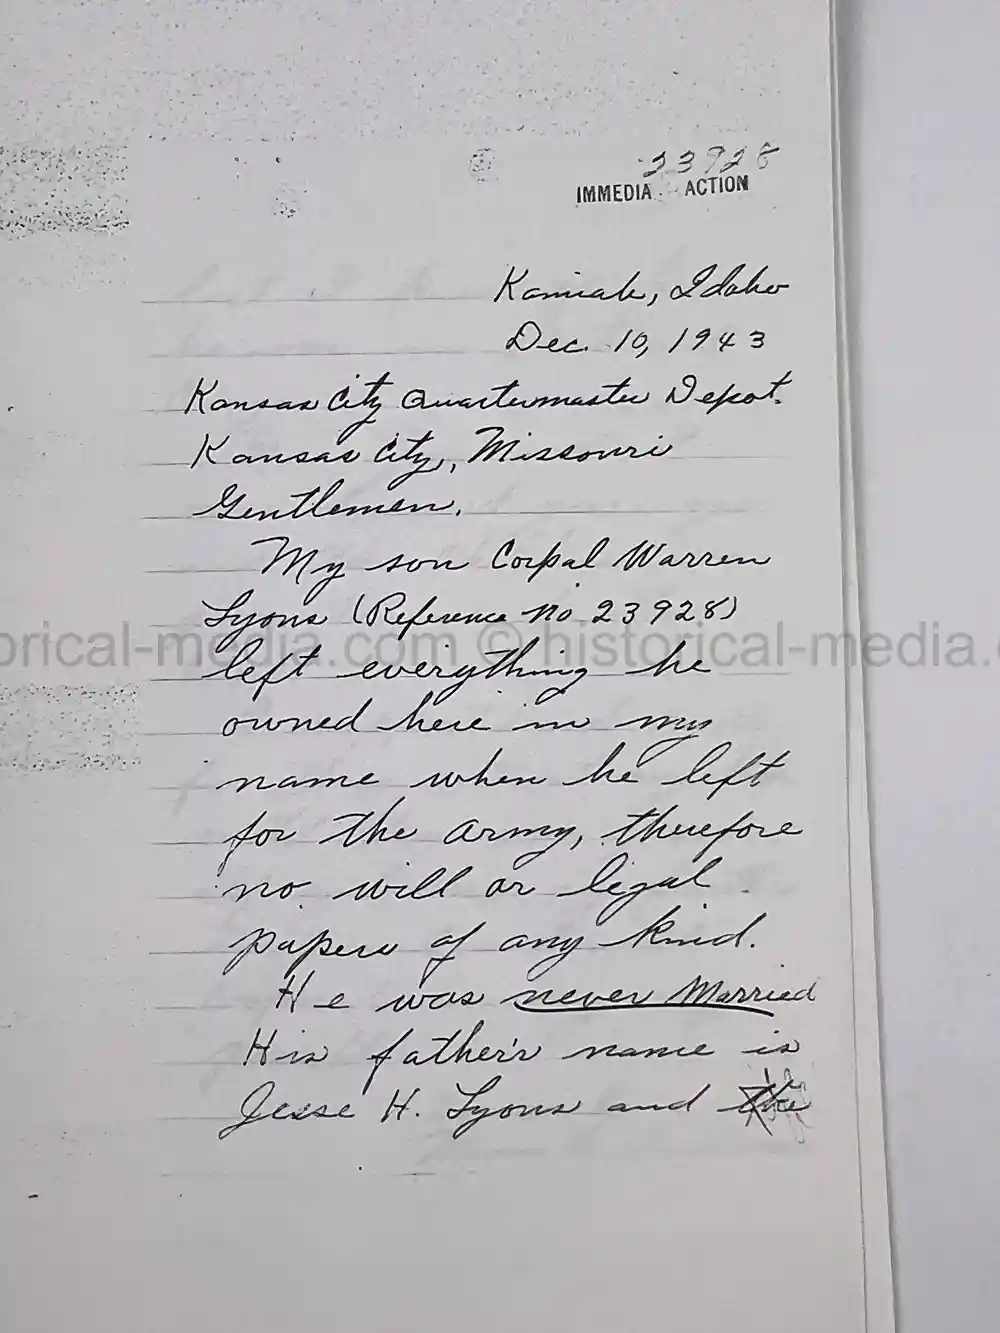 23928
IMMEDIA ACTION
Kamiah, Idaho
Dec. 10, 1943
Kansas City Quartermaster Depot.
Kansas City, Missouri
Gentlemen.
My son Corpal Warren
Lyons (Reference no 23928)
orical-media.com © historical-media.
left everything he
owned here in my
name when he left
for the army, therefore
no will or legal
papers of any kind.
He was never Married
His father's name is
Jesse H. Lyons and the